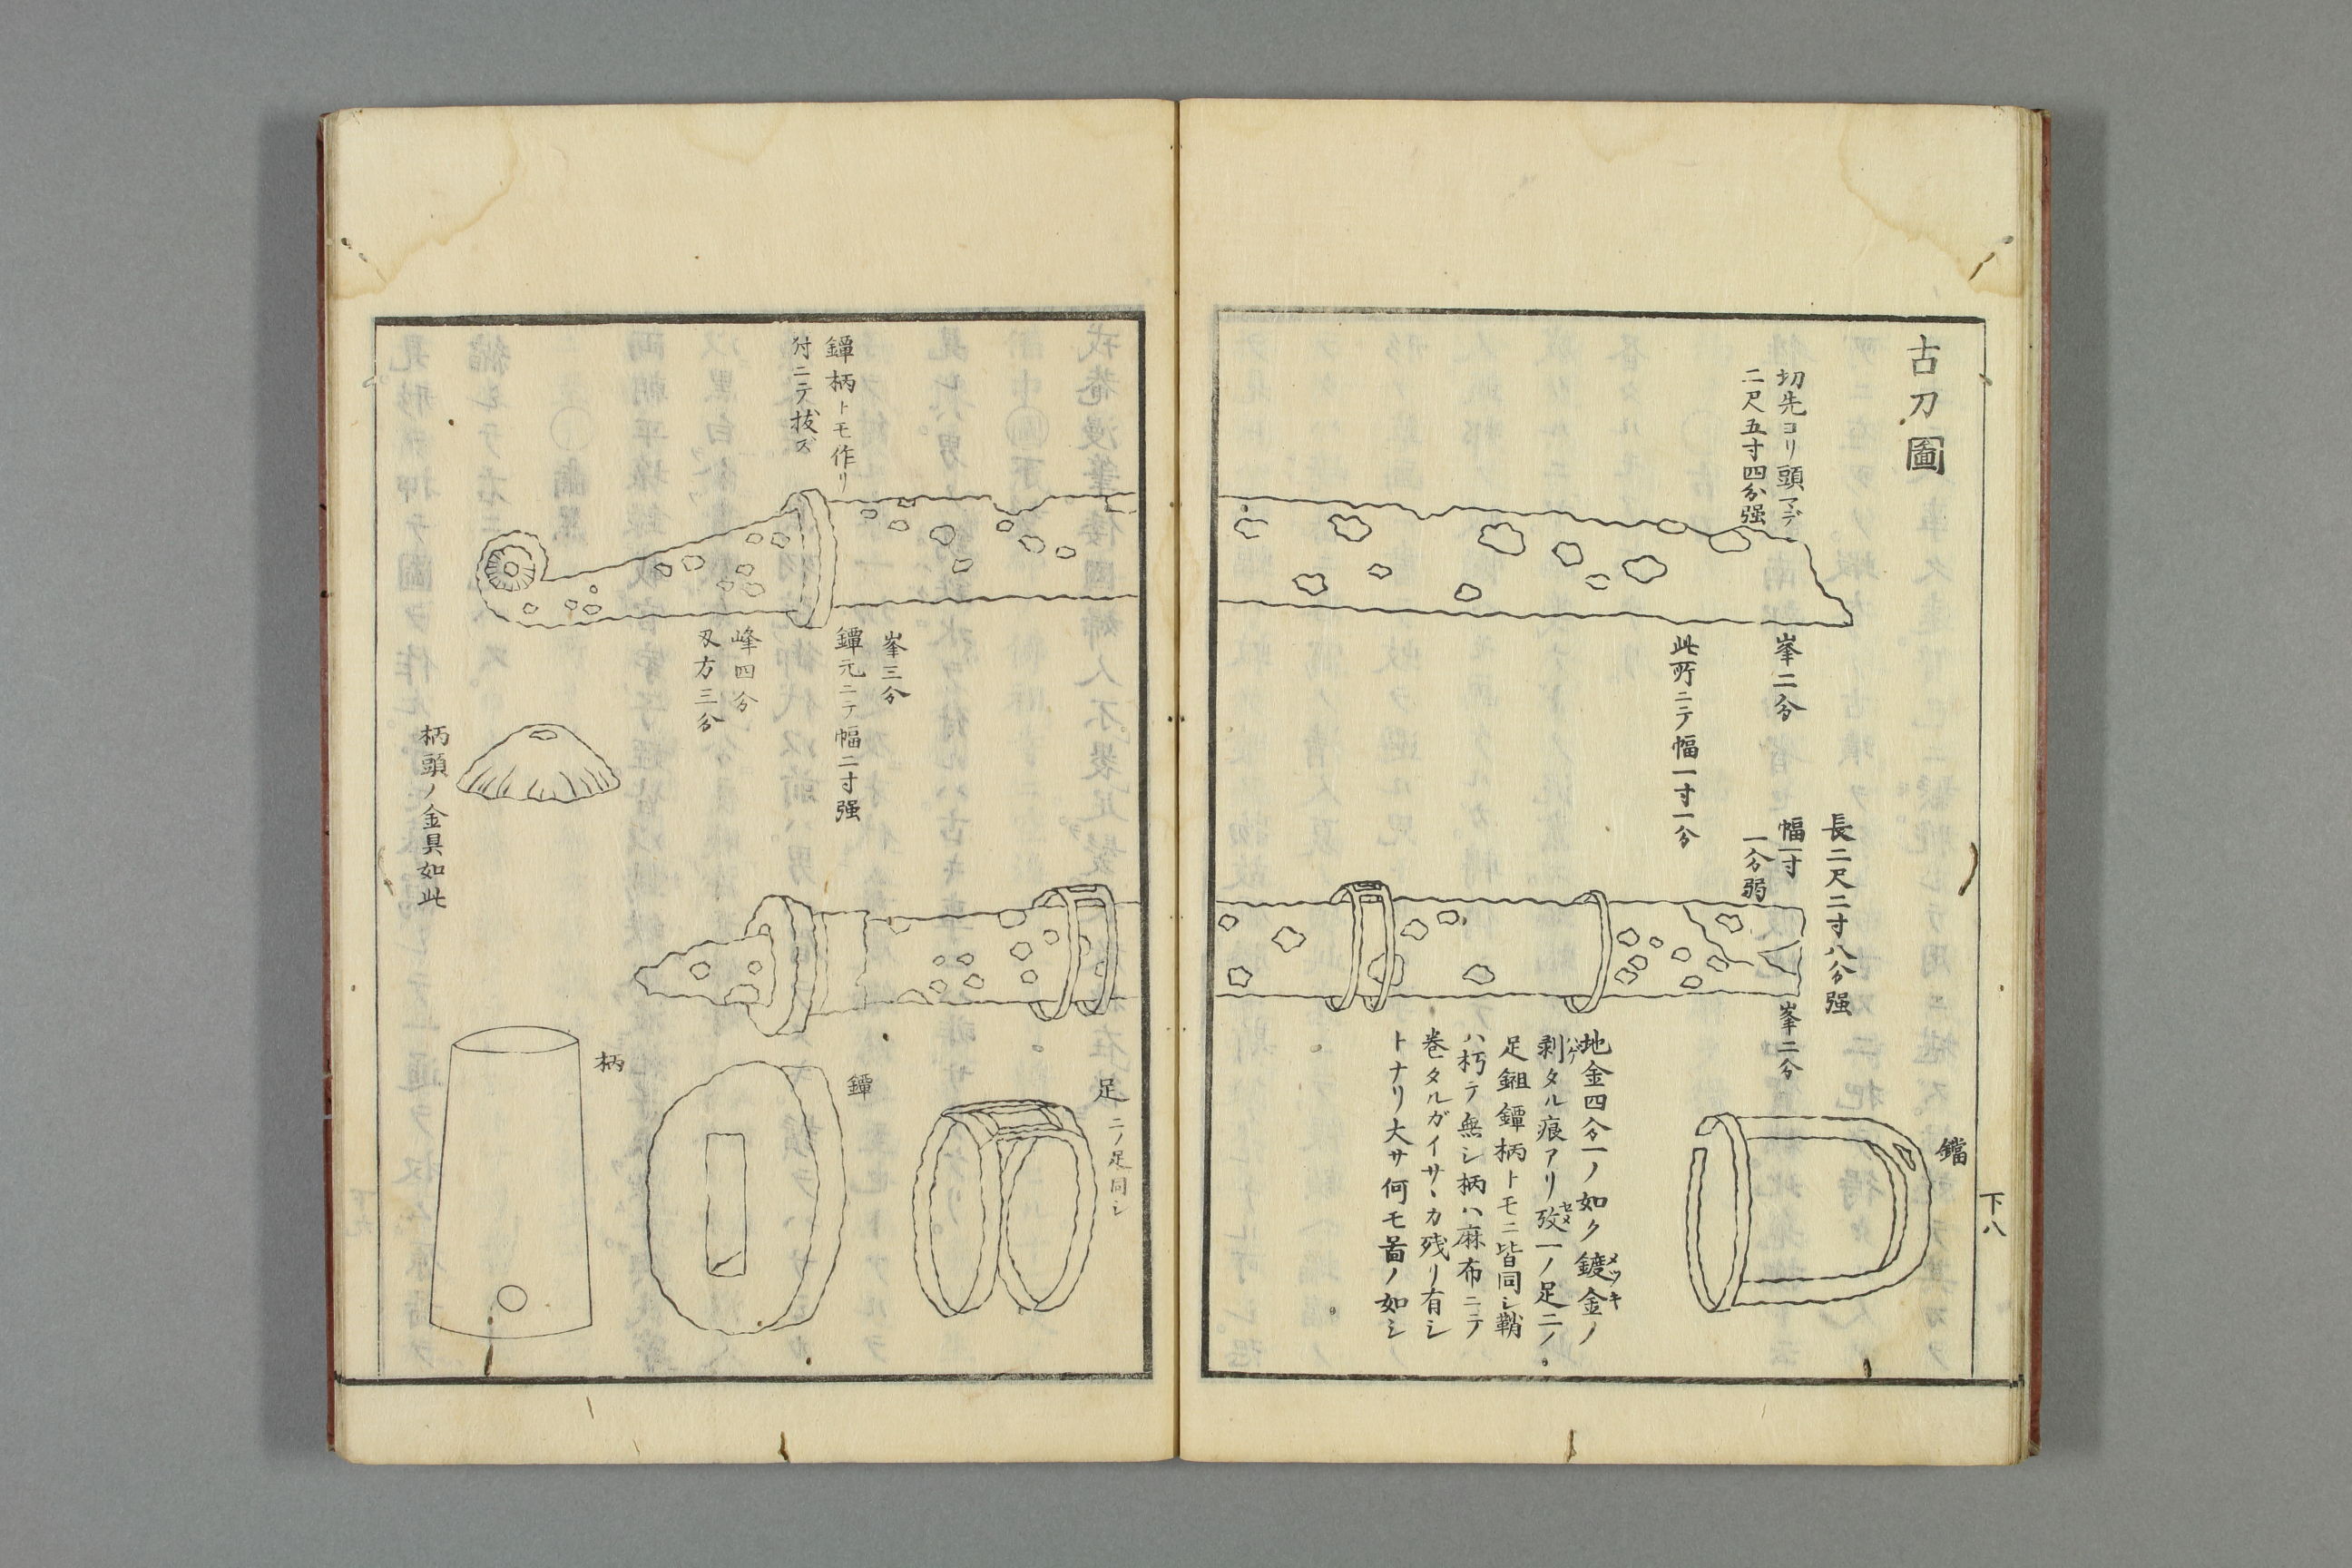 古刀圖
切先ヨリ頭マデ
二尺五寸四分强
峯二分
此所ニテ幅一寸一分
長二尺二寸八分强
幅一寸
一分弱
峯二分
鐺
地金四分一ノ如ク鍍金ノ
メツキ
剥タル痕アリ攷一ノ足二ノ
ハゲ
セメ
足鎺鐔柄トモニ皆同シ鞘
ハ朽テ無シ柄ハ麻布ニテ
巻タルガイサヽカ残リ有シ
トナリ大サ何モ啚ノ如シ
下八
鐔柄トモ作リ
付ニテ拔ズ
峯三分
鐔元ニテ幅二寸强
峰四分
刄方三分
柄頭ノ金具如此
足
二ノ足同シ
鐔
柄